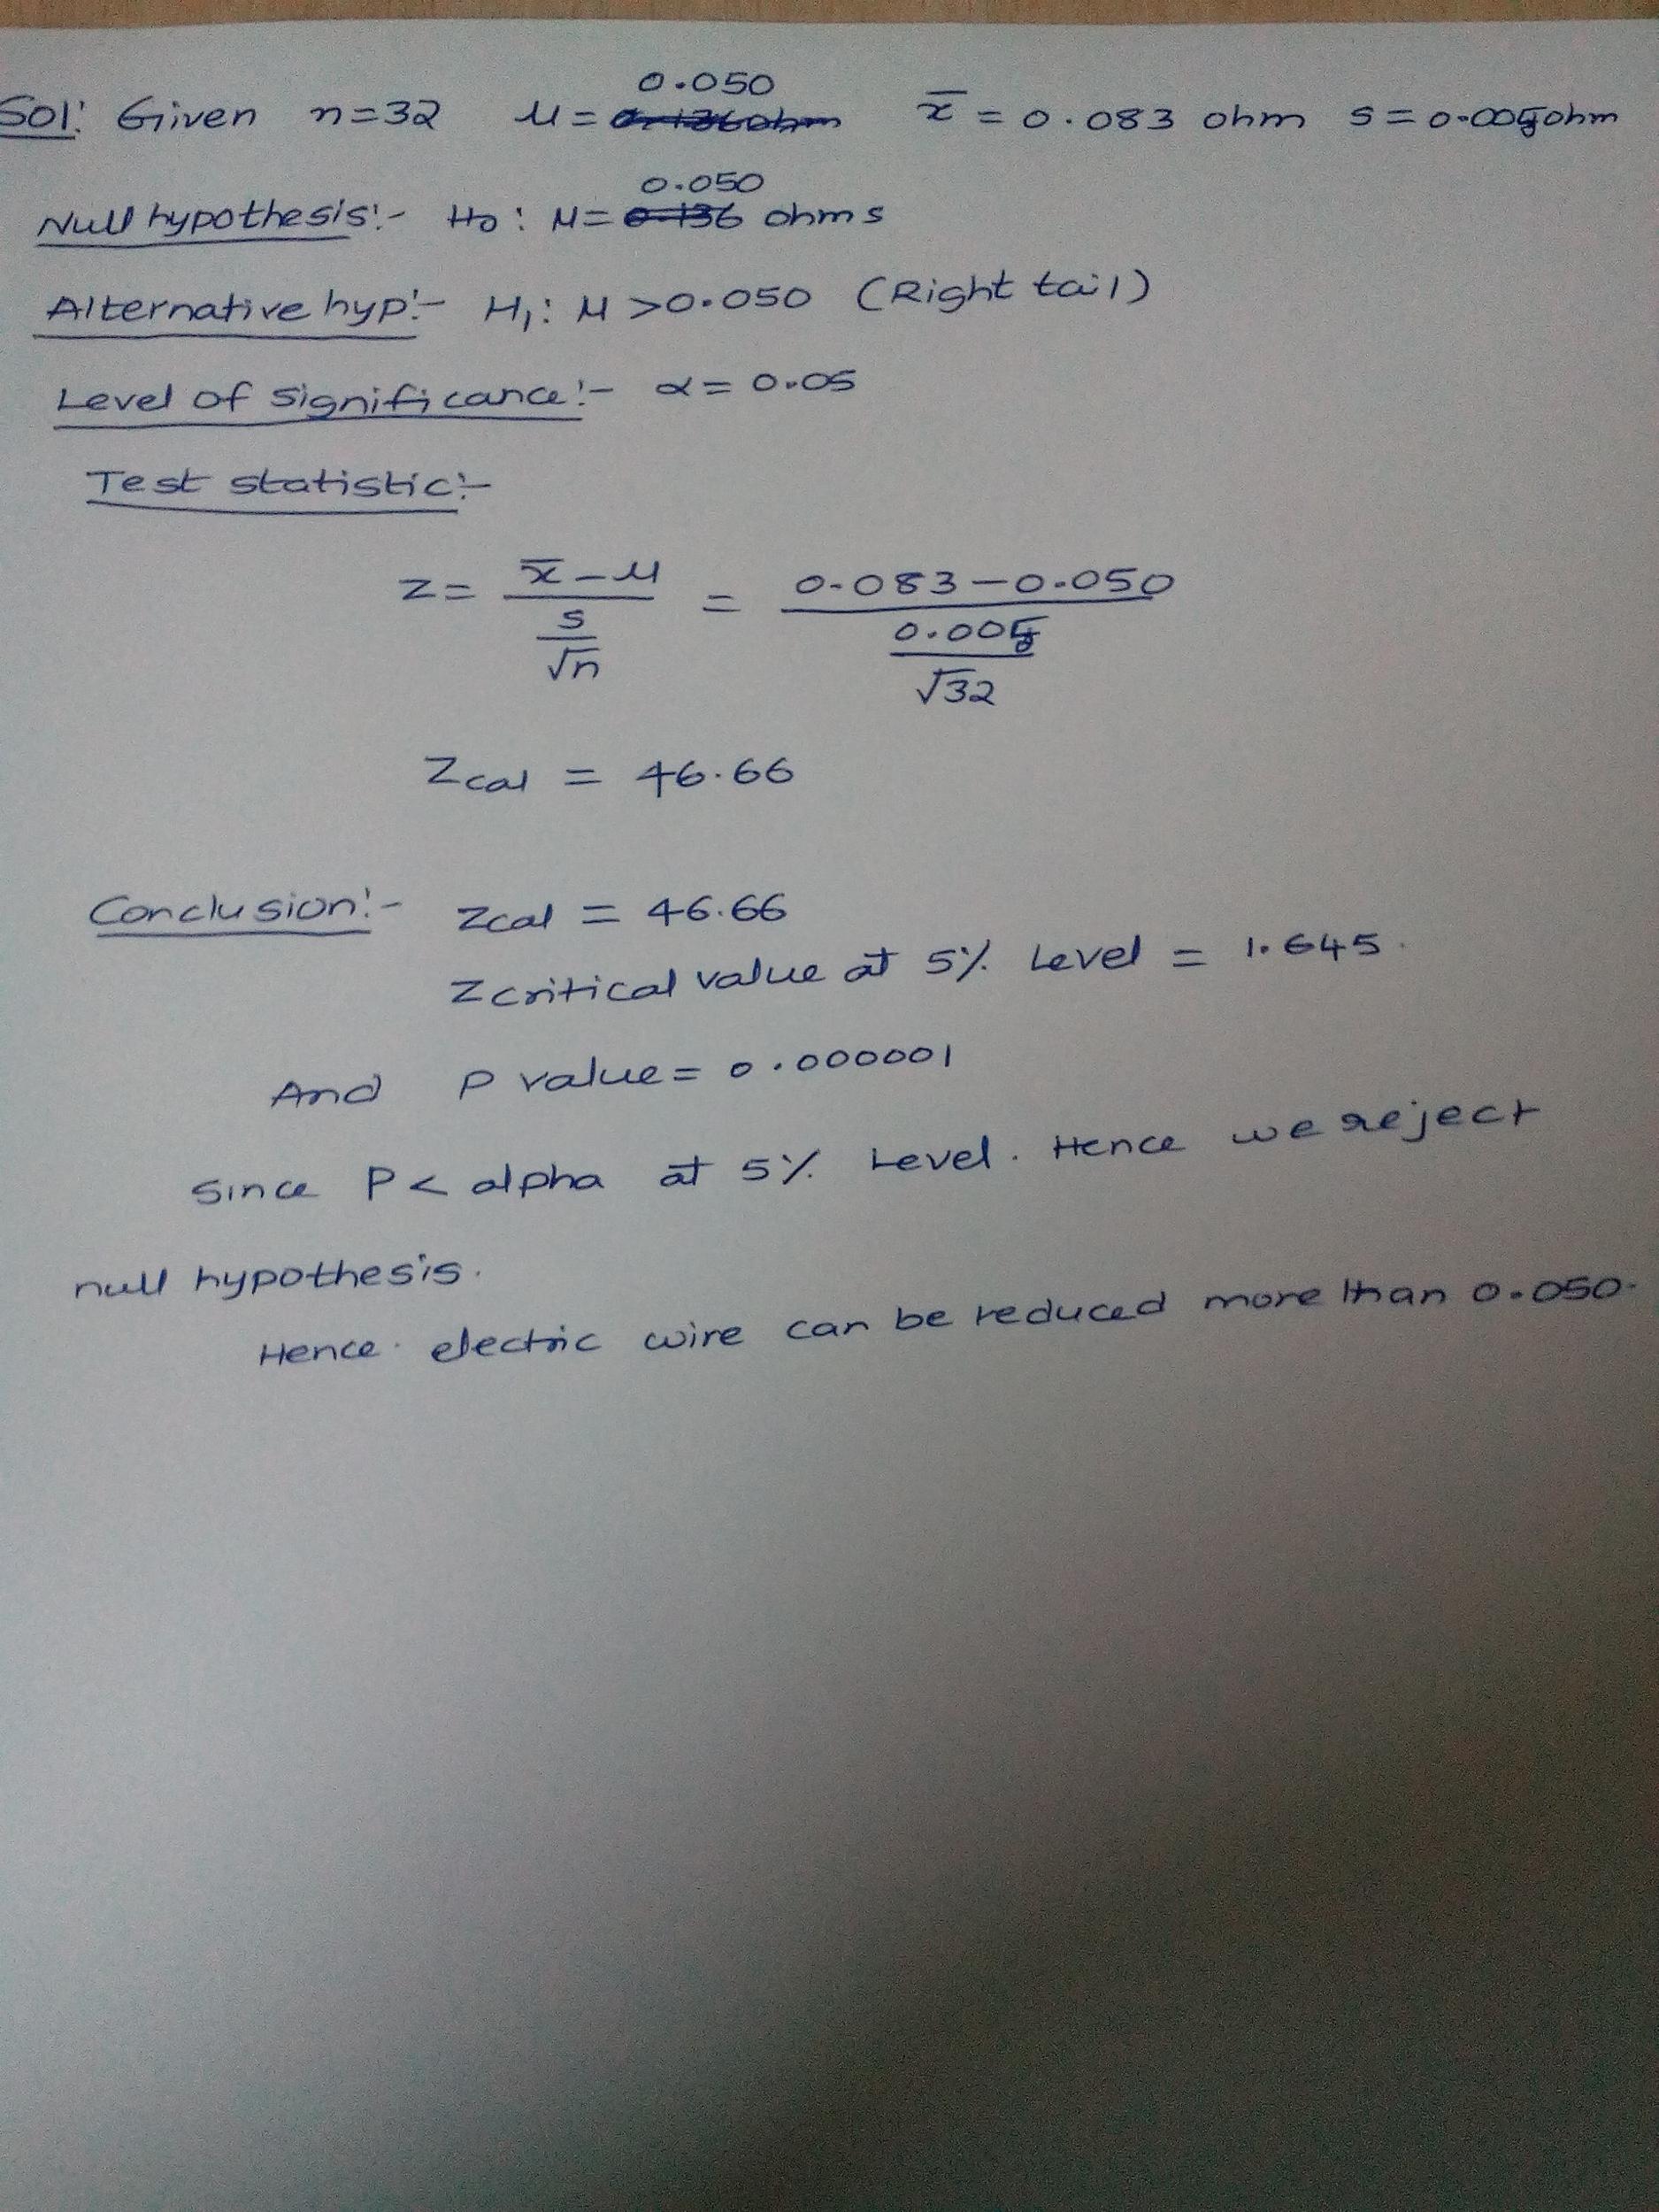 0.050
Sol: Given n=32 μ= x̄ = 0.083 ohm s=0.005ohm
0.050
Null hypothesis:- H0: μ= ohms
Alternative hyp:- H1: μ >0.050 (Right tail)
Level of significance:- α= 0.05
Test statistic:-
z= x̄-μ / s/√n = 0.083-0.050 / 0.005/√32
Zcal = 46.66
Conclusion:- Zcal = 46.66
Z critical value at 5% Level = 1.645.
And P value= 0.000001
since P< alpha at 5% Level. Hence we reject
null hypothesis.
Hence electric wire can be reduced more than 0.050.